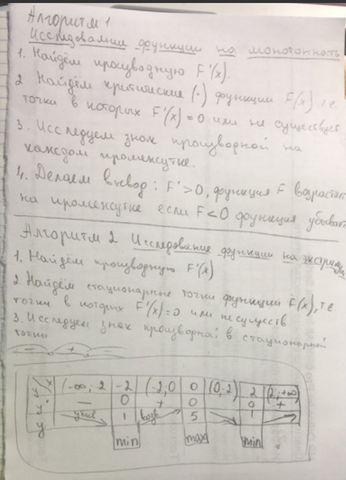 Алгоритм 1
Исследование функции на монотонность
1. Найдём производную F'(x).
2 Найдём критические (·) функции F(x), те
точки в которых F'(x)=0 или не существует
3. Исследуем знак производной на
каждом промежутке.
4. Делаем вывод: F'>0, функция F возрастает
на промежутке если F<0 функция убывает
Алгоритм 2 Исследование функции на экстремум
1. Найдём производную F'(x)
2. Найдём стационарные точки функции F(x), те
точки в которых F'(x)=0 или несуществ
3. Исследуем знак производной в стационарной
точке
x (-∞, 2 -2 (-2, 0 0 (0, 2) 2 (2, +∞)
y' — 0 + 0 - 0 +
y 1 возр 5 1
min max min